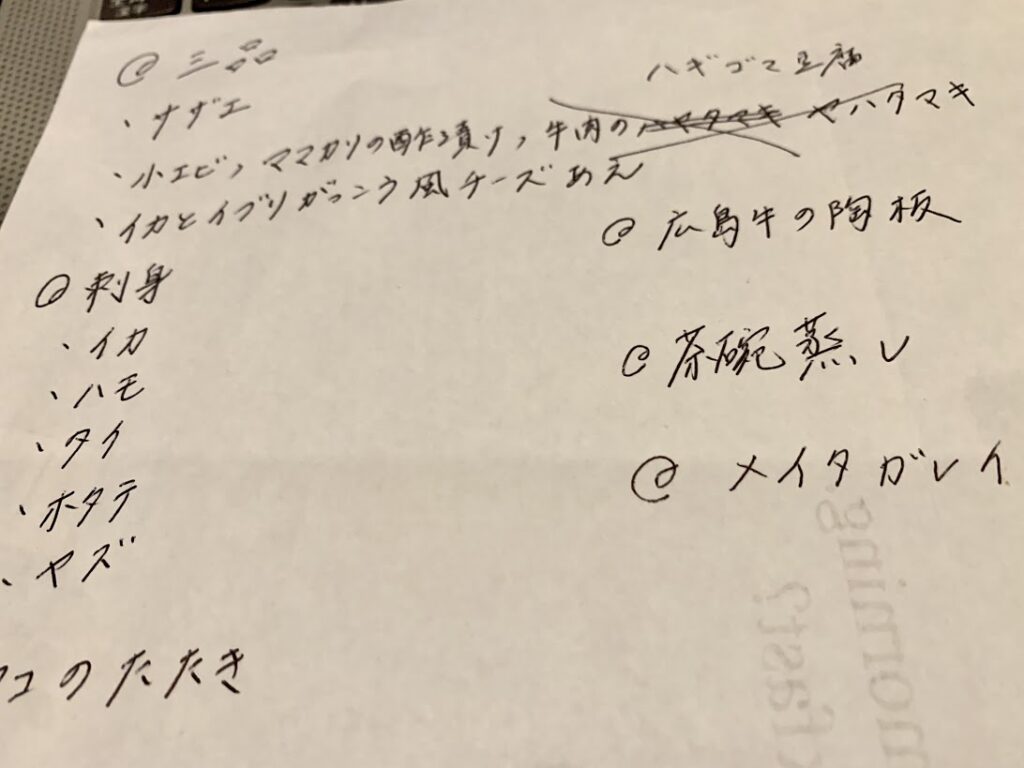 @ 三品
・サザエ
・小エビ、ママカリの酢漬け、牛肉のハヤタマキ ヤハタマキ
ハギゴマ豆腐
・イカとイブリがっこう風チーズあえ
@ 刺身
・イカ
・ハモ
・タイ
・ホタテ
・ヤズ
コのたたき
@ 広島牛の陶板
@ 茶碗蒸し
@ メイタガレイ